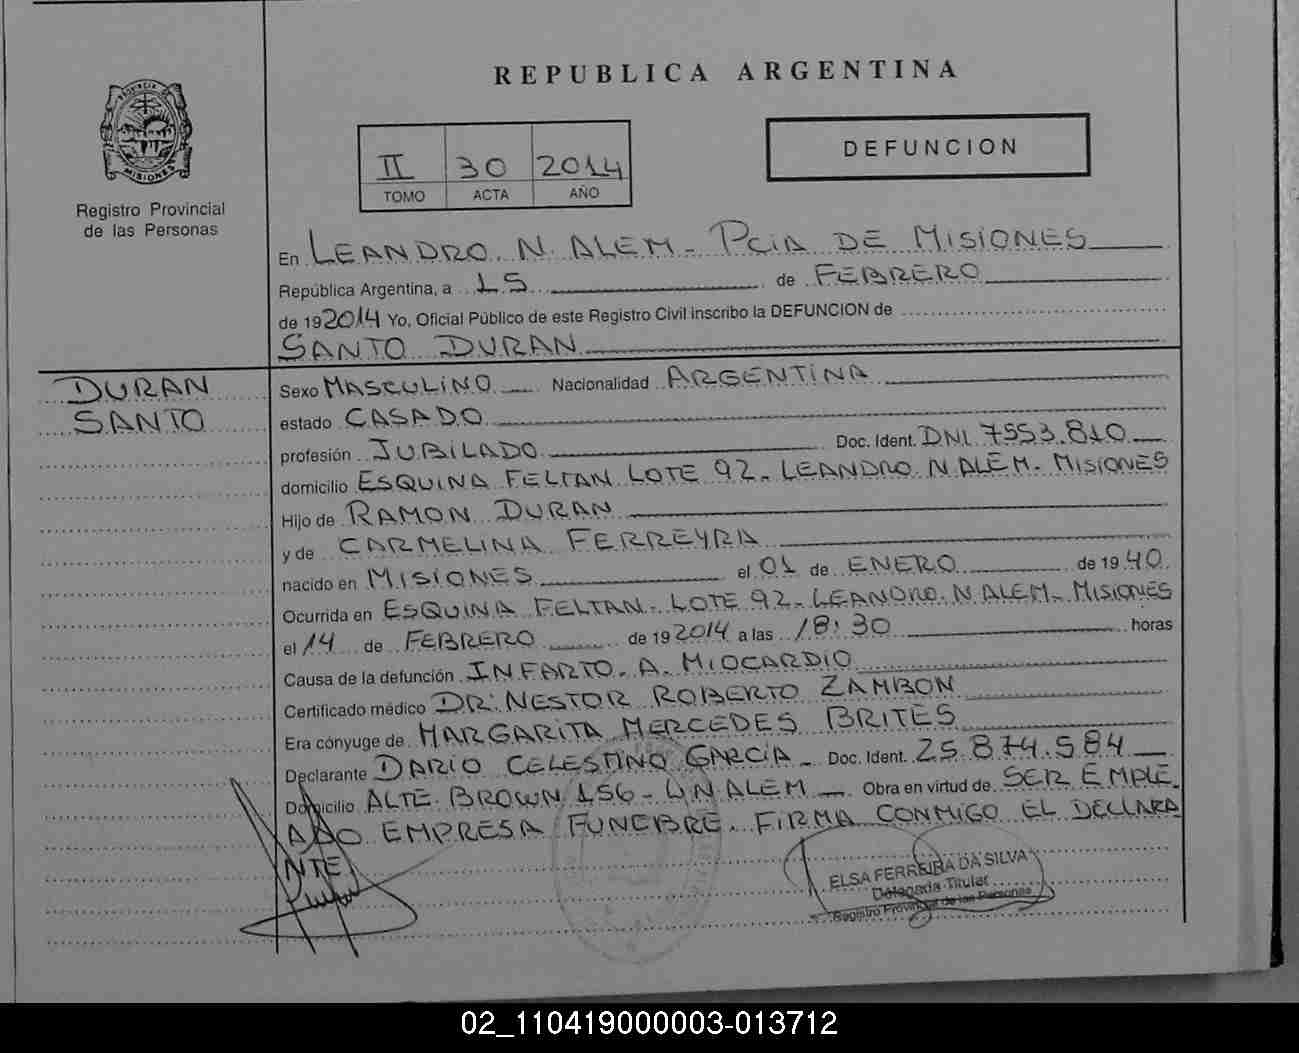 REPUBLICA ARGENTINA
PROVINCIA DE
MISIONES
Registro Provincial
de las Personas
II 30 2014
TOMO ACTA AÑO
DEFUNCION
En LEANDRO. N. ALEM - PCIA DE MISIONES
República Argentina, a 15 de FEBRERO
de 192014 Yo, Oficial Público de este Registro Civil inscribo la DEFUNCION de
SANTO DURAN
DURAN
SANTO
Sexo MASCULINO Nacionalidad ARGENTINA
estado CASADO
profesión JUBILADO Doc. Ident. DNI 7553.810
domicilio ESQUINA FELTAN LOTE 92 - LEANDRO N ALEM - MISIONES
Hijo de RAMON DURAN
y de CARMELINA FERREYRA
nacido en MISIONES el 01 de ENERO de 19 40
Ocurrida en ESQUINA FELTAN - LOTE 92 - LEANDRO. N ALEM - MISIONES
el 14 de FEBRERO de 19 2014 a las 18:30 horas
Causa de la defunción INFARTO. A. MIOCARDIO
Certificado médico DR: NESTOR ROBERTO ZAMBON
Era cónyuge de MARGARITA MERCEDES BRITES
Declarante DARIO CELESTINO GARCIA - Doc. Ident. 25.874.584
Domicilio ALTE. BROWN 156 - LNALEM - Obra en virtud de SER EMPLE
ADO EMPRESA FUNEBRE. FIRMA CONMIGO EL DECLARA
NTE
ELSA FERREIRA DA SILVA
Delegada Titular
Registro Provincial de las Personas
02_110419000003-013712